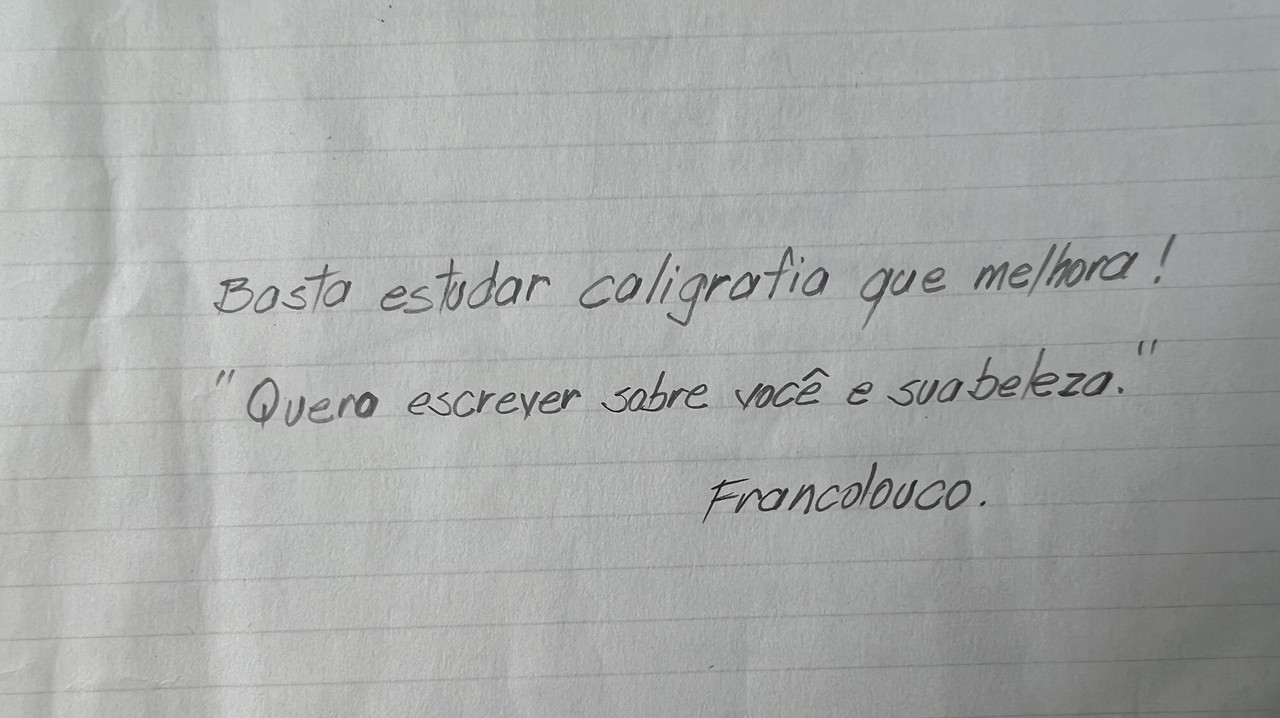 Basta estudar caligrafia que melhora!
"Quero escrever sobre você e sua beleza."
Francolouco.